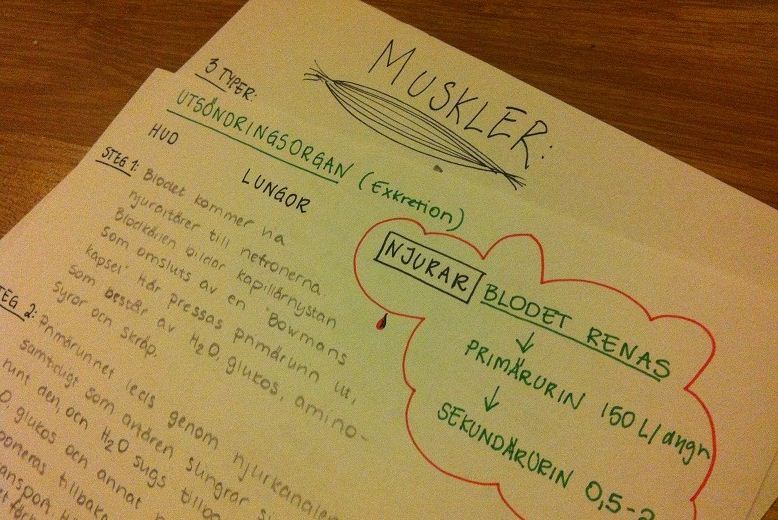 MUSKLER:
3 TYPER:
UTSÖNDRINGSORGAN (Exkretion)
HUD
LUNGOR
STEG 1: Blodet kommer via
njurartärer till nefronerna.
Blodkärlen bildar kapillärnystan
som omsluts av en "Bowmans
kapsel" Här pressas primärurin ut,
som består av H2O, glukos, amino-
syror och skräp.
STEG 2: Primärurinet leds genom njurkanalen
samtidigt som andren slingrar
runt den, och H2O sugs
glukos och annat
tillbaka
NJURAR
BLODET RENAS
↓
PRIMÄRURIN 150 L/dygn
↓
SEKUNDÄRURIN 0,5-2